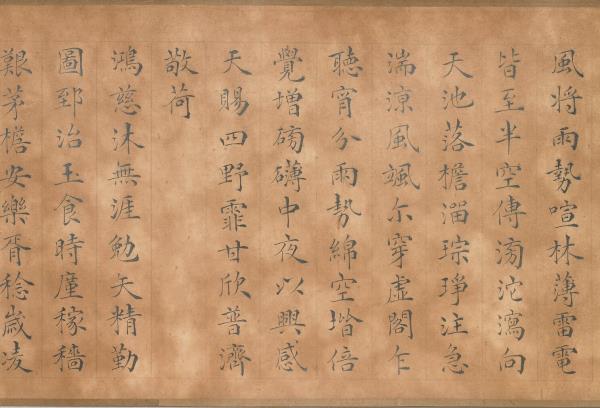 風将雨勢喧林薄雷電
皆至半空傳滂沱瀉向
天池落檐溜琮琤注急
湍涼風颯尒穿虛閣乍
聽宵分雨勢綿空堦倍
覺增磅礴中夜以興感
天賜四野霏甘欣普濟
敬荷
鴻慈沐無涯勉矢精勤
圖郅治玉食時廑稼穡
艱茅檐安樂胥稔歲凌